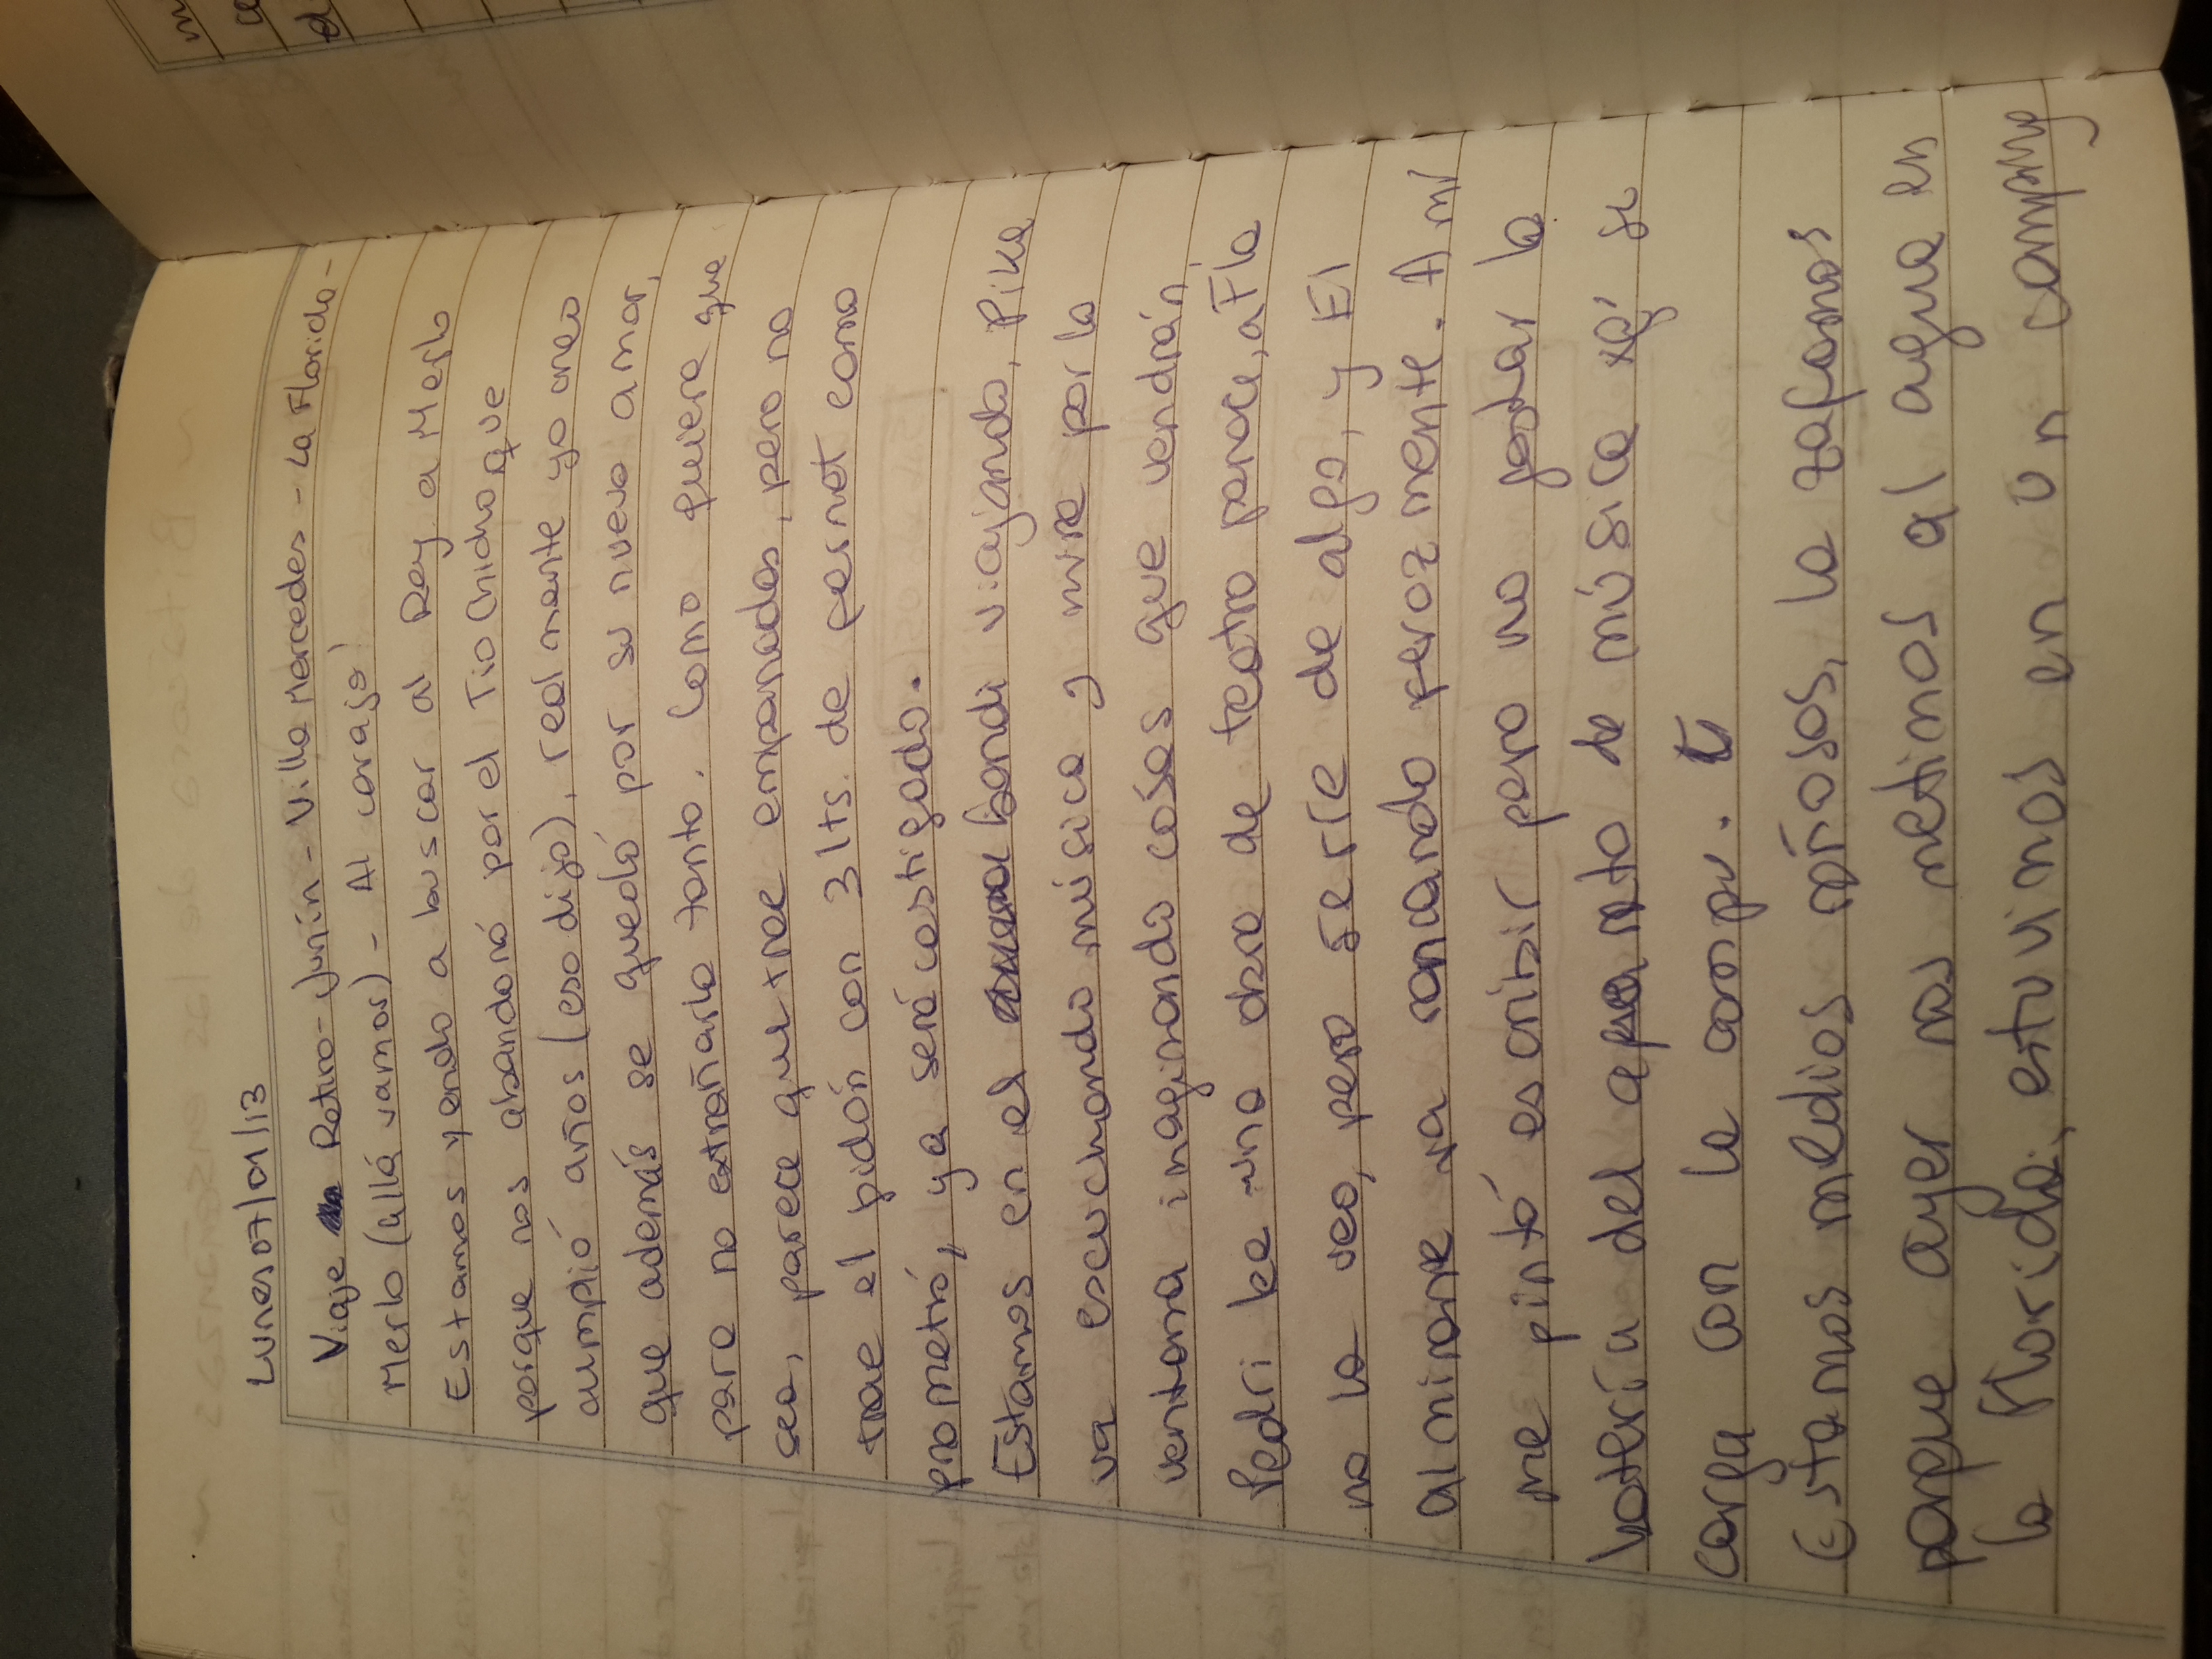 Lunes 07/01/13
Viaje Retiro - Junín - Villa Mercedes - La Florida -
Merlo (allá vamos) - Al carajo!
Estamos yendo a buscar al Rey a Merlo
porque nos abandonó por el Tio Chicho que
cumplió años (eso dijo), realmente yo creo
que además se quedó por su nuevo amor,
para no extrañarlo tanto. Como quiera que
sea, parece que trae empanadas, pero no
trae el bidón con 3 lts. de fernet como
prometió, ya será castigado.
Estamos en el bondi viajando, Pika
va escuchando música y mira por la
ventana imaginando cosas que vendrán,
Pedri lee una obra de teatro parece, a Fla
no la veo, pero se ríe de algo, y El
almirante va roncando ferozmente. A mí
me pintó escribir pero no gastar la
batería del aparato de música xq' se
carga con la compu.
Estamos medios roñosos, la zafamos
porque ayer nos metimos al agua en
la Florida, estuvimos en un camping